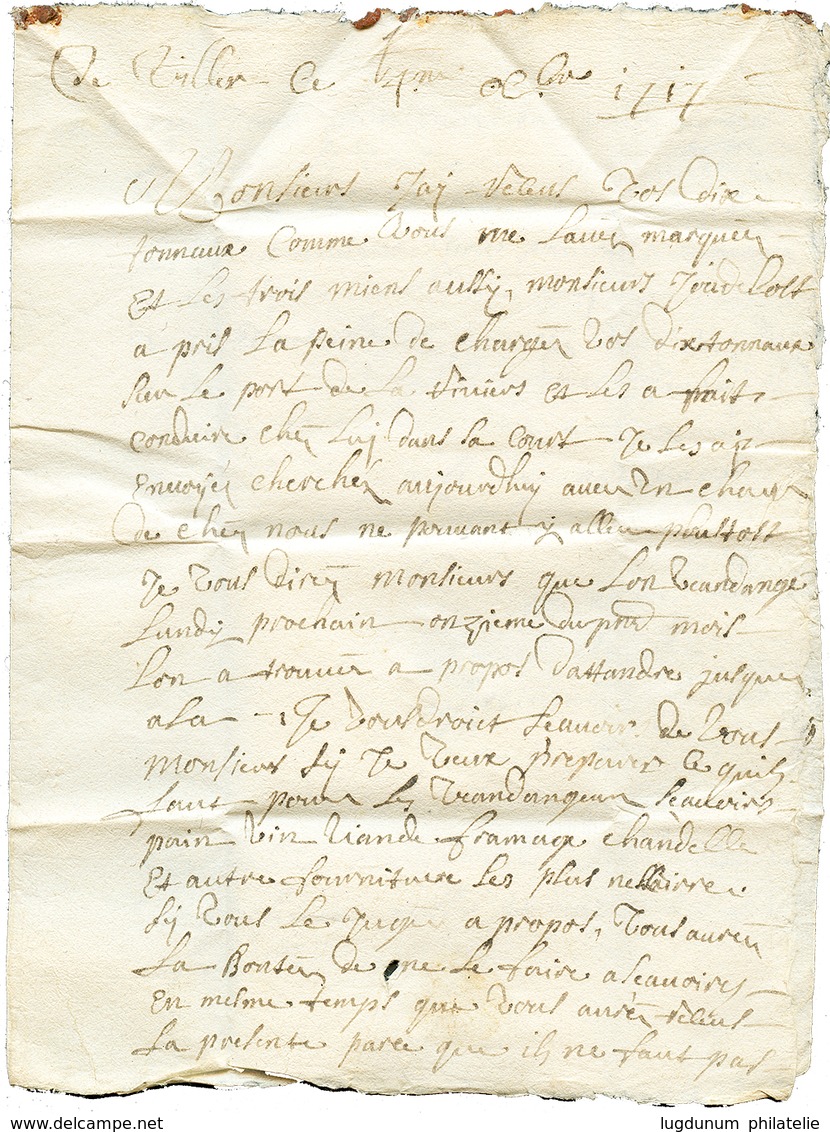 De Viller Ce 4me 8bre 1717
Monsieurs Jay Receus Vos dix
tonnaux Comme Vous me Lavez marquez
Et Les trois miens aussy, monsieurs
a pris La peine de charger Vos dix tonnaux
sur Le port de La Riviers et Les a fait
conduire chez Luy dans sa Court Je Les ay
Envoyez chercher aujourdhuy avec Un chart
de chez nous ne pouvant y aller plustost
Je Vous direz Monsieurs que Lon Vandange
Lundy prochain onzieme du pnt mois
Lon a trouver a propos dattandre jusques
a La Je Voudroict Scavoir de Vous
Monsieurs sy Je Veux preparer Ce quil
faut pour Les Vandangeur Scavoirs
pain Vin Viande framage chandelle
Et autre fourniture Les plus nessairre
sy Vous Le Juger a propos, Vous aurez
La Bontez de me Le faire a scavoirs
En mesme temps que Vous aurez Receus
La presente parce que il ne faut pas
lugdunum philatelie